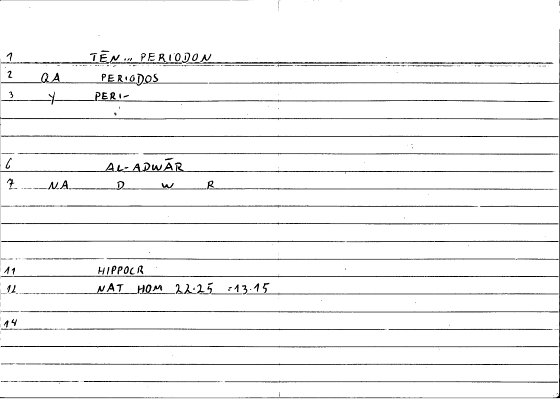 1 TĒN... PERIODON
2 QA PERIODOS
3 Y PERI-
6 AL-ADWĀR
7 NA D W R
11 HIPPOCR
12 NAT HOM 22.25 =13.15
14